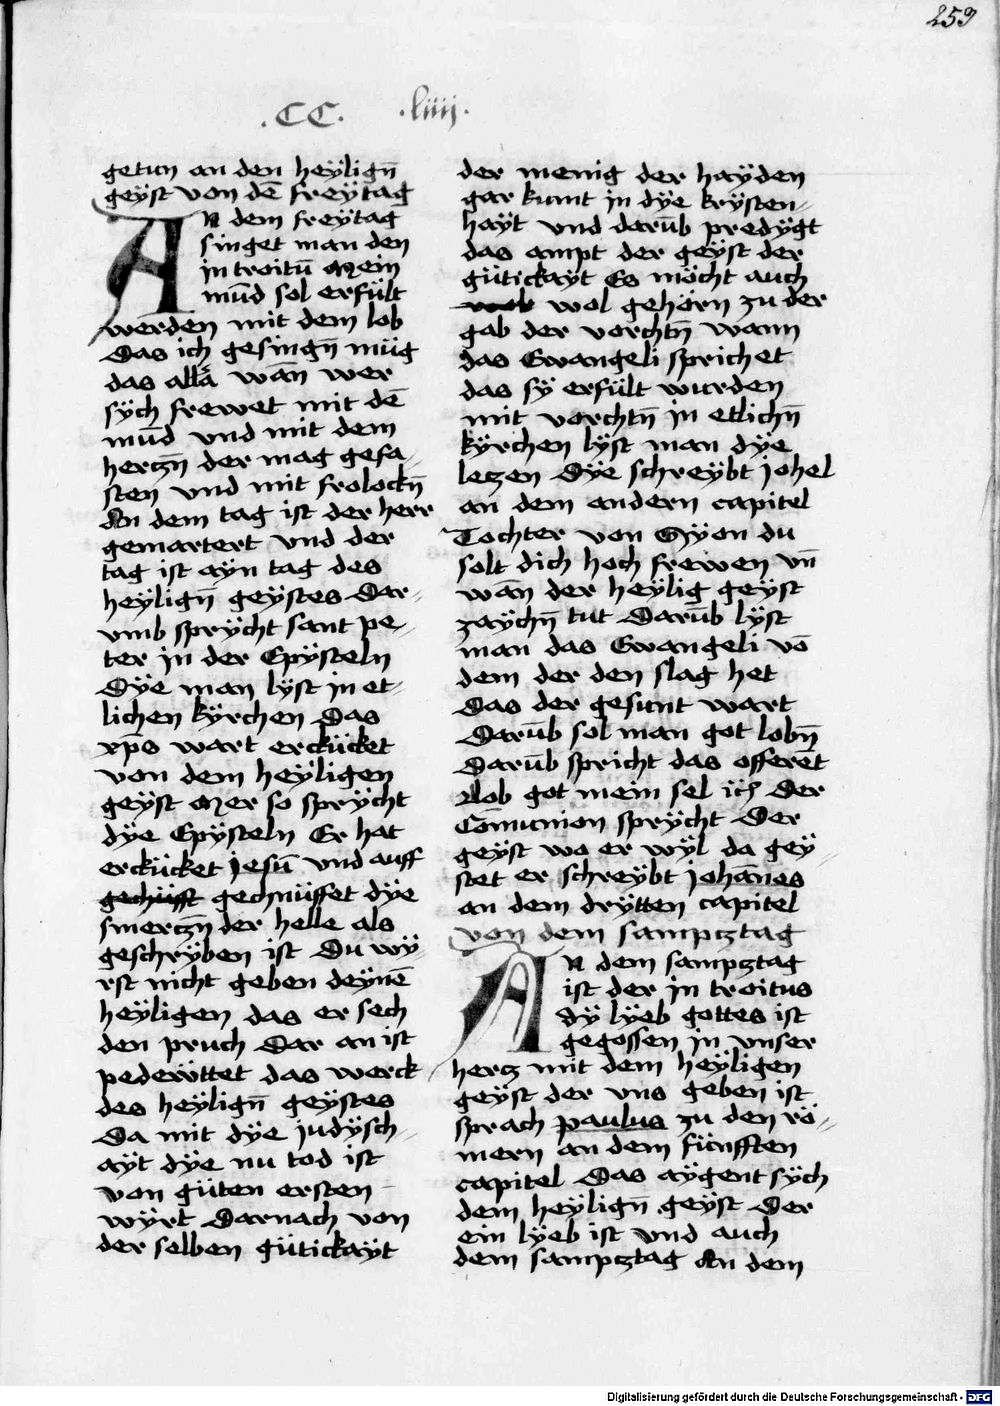 259
.CC. .liiij.
getun an den heyÿlign̄
geÿst von dē freÿtag
AN dem freÿtag
singet man den
in troitū Mein
mūd sol erfült
werden mit dem lob
Das ich gesingn̄ müg
das allā wān wer
sÿch frewet mit dē
mūd vnd mit dem
herczn̄ der mag gefa-
sten vnd mit frolockn̄
An dem tag ist der herr
gemartert vnd der
tag ist aÿn tag des
heÿlign̄ geÿstes Dar-
vmb sprÿcht sant pe-
ter in der Epÿsteln
Dÿe man lÿst in et-
lichen kÿrchen Das
xp̄s wart erckücket
von dem heÿligen
geÿst Mer so sprÿcht
dÿe Epÿsteln Er hat
erckücket jesū vnd auff
gechnüffet dÿe
smerczn̄ der helle als
geschrÿben ist Du wÿ-
rst nicht geben deÿnē
heÿligen das er sech
den pruch Dar an ist
pedewttet das werck
des heÿlign̄ geÿstes
Da mit dÿe judÿsch-
aÿt dÿe nu tod ist
von güten ersten
wÿrt Darnach von
der selben gütickaÿt
der menig der haÿden
gar kumt in dÿe krÿsten-
haÿt vnd darūb predÿgt
das ampt der geÿst der
gütickaÿt Es möcht auch
wol gehörn zu der
gab der vorchtn̄ wann
das Ewangeli sprichet
das sÿ erfült wurden
mit vorchtn̄ in etlichn̄
kÿrchen lÿst man dÿe
letzen Dÿe schreÿbt johel
an dem andern capitel
Tochter von Sÿon du
solt dich hoch frewen vn̄
wān der heÿlig geÿst
zaÿchn̄ tut Darūb lÿst
man das Ewangeli vō
dem der den slag het
Das der gesunt wart
Darūb sol man got lobn̄
Darūb spricht das offerēt
Nob got mein sel ich Der
Cōmunion sprÿcht Der
geÿst wo er wÿl da geÿ-
stet er schreÿbt johānes
an dem drÿtten capitel
von dem sampcztag
AN dem sampcztag
ist der in troitus
dÿ lÿeb gottes ist
gegossen in vnser
hercz mit dem heÿligen
geÿst der vns geben ist
sprach paulus zu den rö-
mern an dem fünfften
capitel Das aÿgent sÿch
dem heÿlign̄ geÿst Der
ein lÿeb ist vnd auch
dem sampcztag An dem
Digitalisierung gefördert durch die Deutsche Forschungsgemeinschaft - DFG